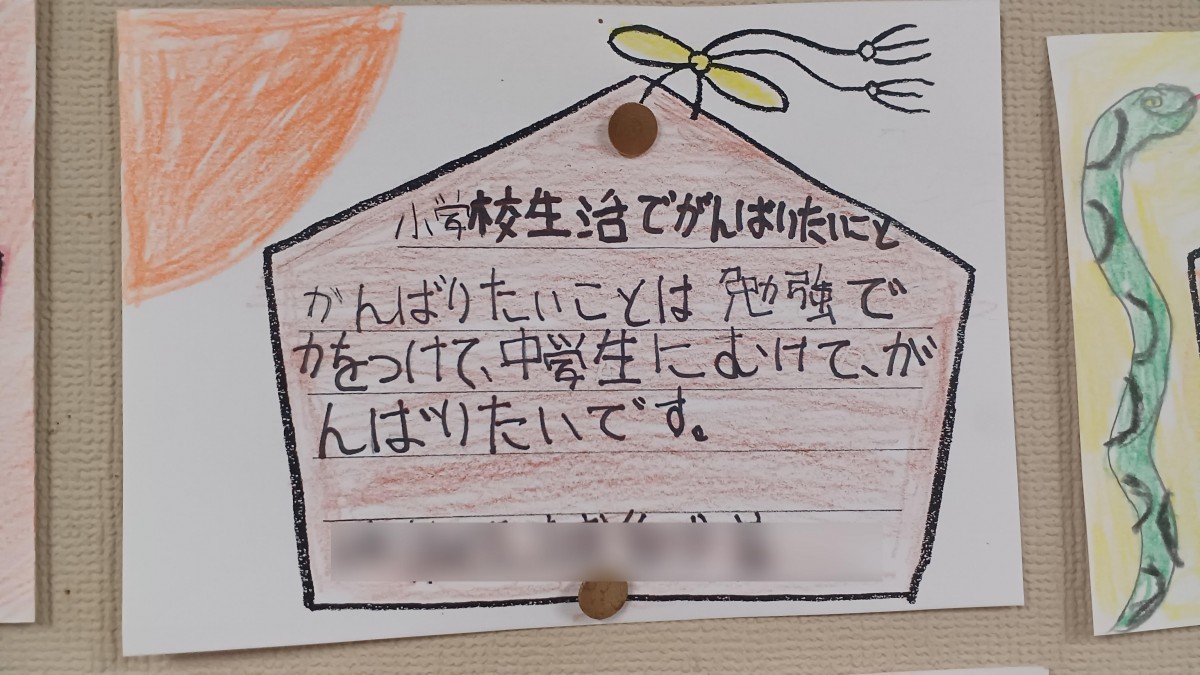 小学校生活でがんばりたいこと
がんばりたいことは 勉強で
力をつけて、中学生にむけて、が
んばりたいです。